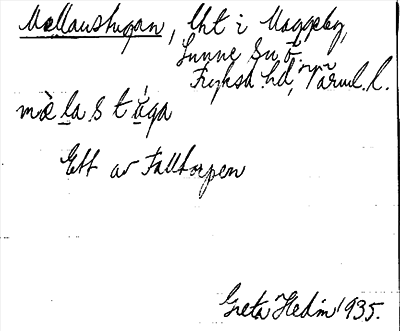 Mellanstugan, lht i Uggleby,
Sunne sn ö.
Fryksd. hd, Värml. l.
mä̀lastúga
Ett av Falltorpen
Greta Hedin 1935.